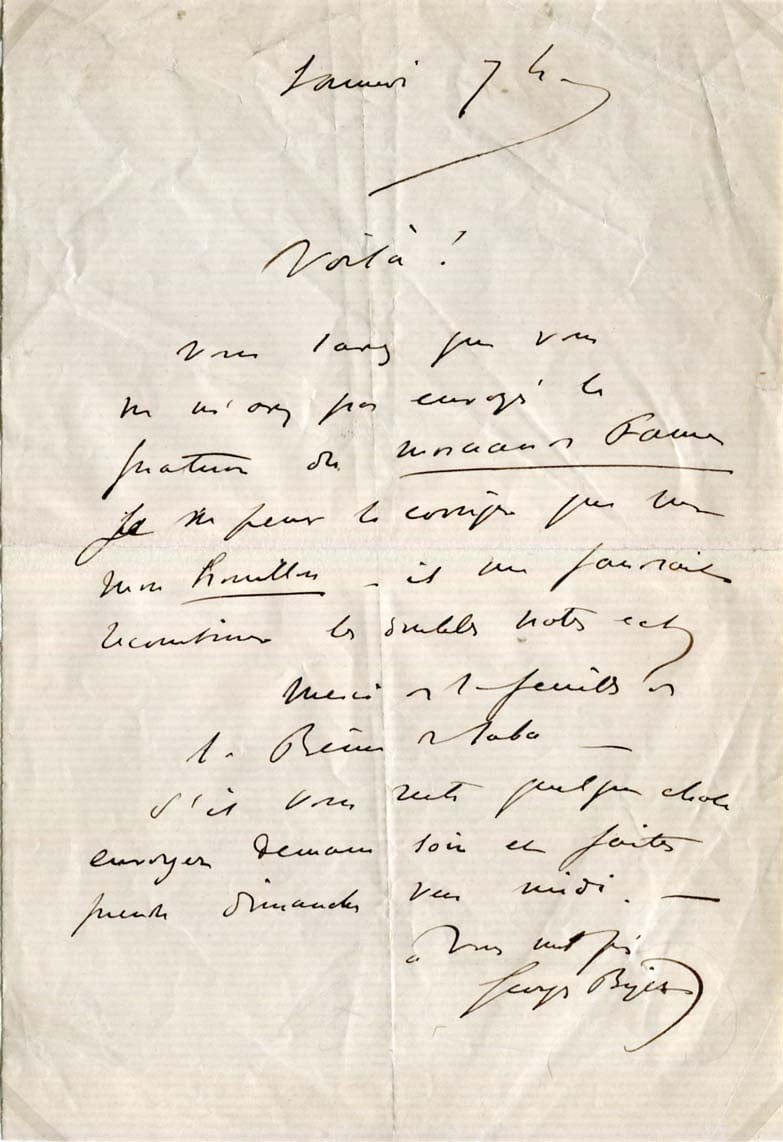 Samedi 7 h.
Voilà !
Vous savez que vous
ne m'avez pas envoyé le
quatuor de
Je ne peux le corriger que sur
mon brouillon - il me faudrait
recombiner les doubles notes ect
Merci et feuilles
la Reine de Saba —
S'il vous reste quelque chose
envoyez demain soir et faites
prendre dimanche vers midi. —
à vous mille fois
Georges Bizet